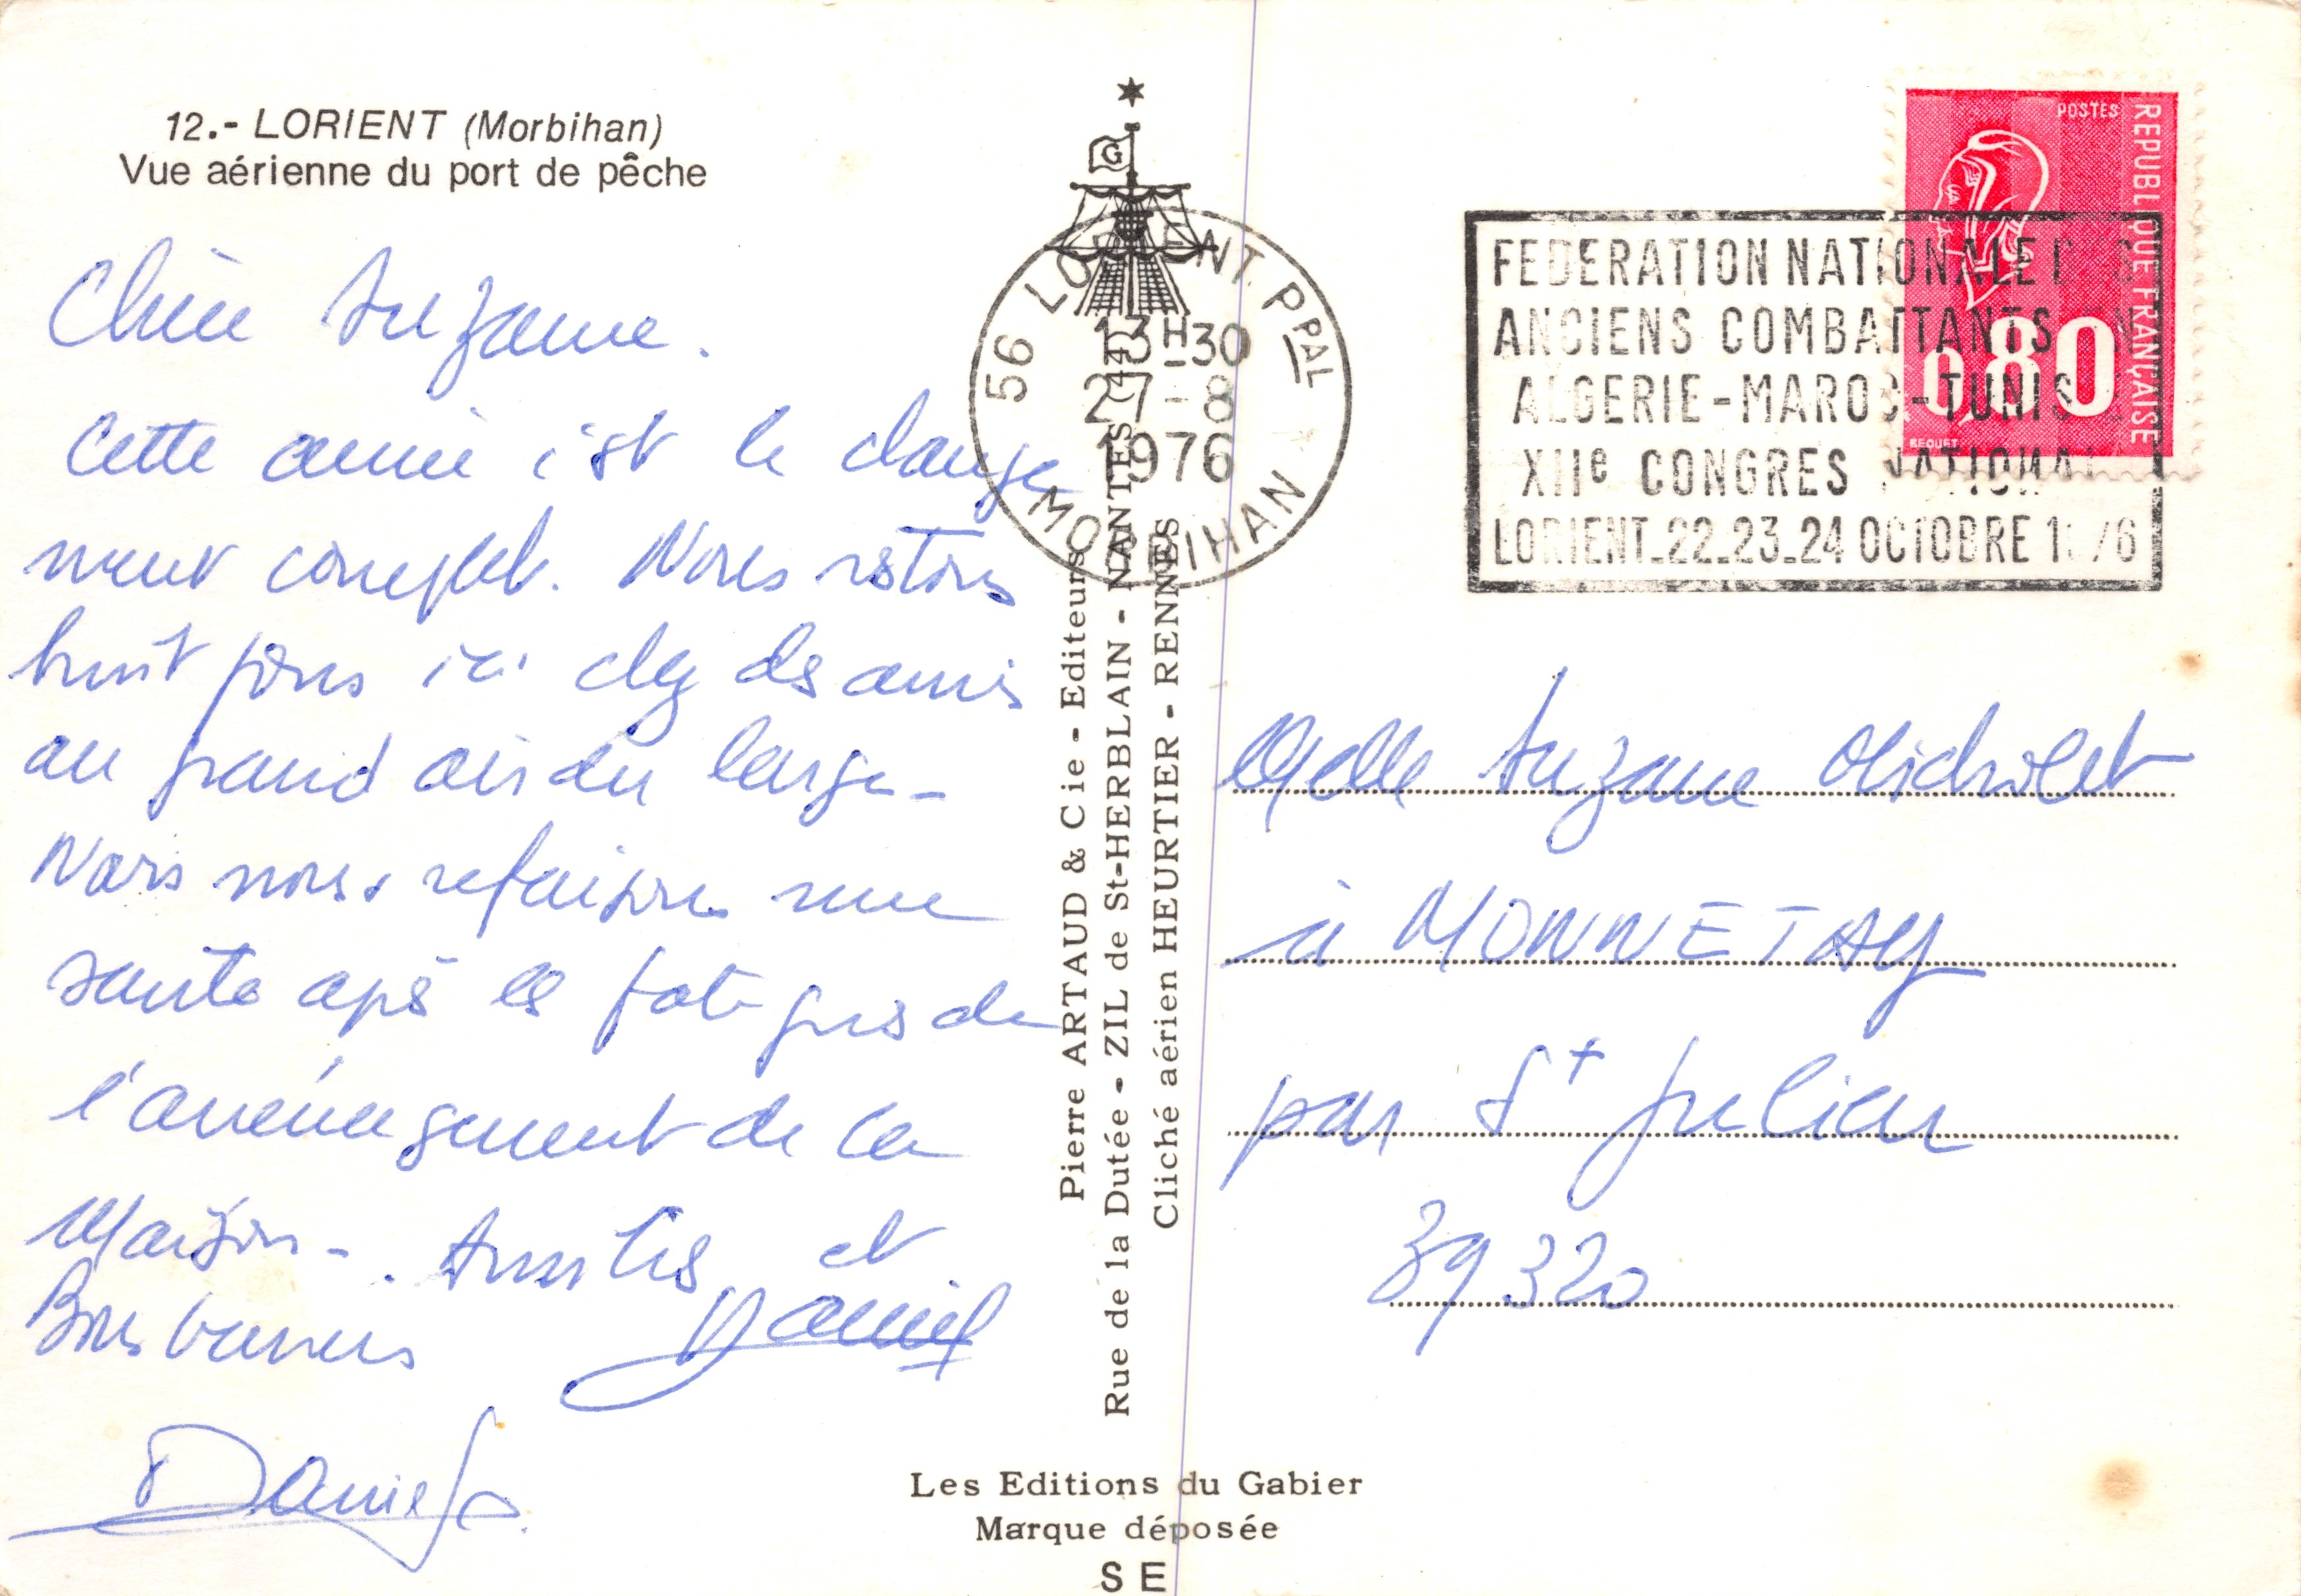 12.- LORIENT (Morbihan)
Vue aérienne du port de pêche
Chère Suzanne.
Cette année c'est le change
ment complet. Nous restons
huit jours ici chez des amis
au grand air du large -
Nous nous refaisons une
santé après les fatigues de
l'aménagement de la
Maison - . Amitiés et
Bons baisers
Daniel
Daniel
G
Pierre ARTAUD & Cie - Editeurs
Rue de la Dutée - ZIL de St-HERBLAIN - NANTES (44)
Cliché aérien HEURTIER - RENNES
Les Editions du Gabier
Marque déposée
S E
56 LORIENT PPAL
13H30
27-8
1976
MORBIHAN
FEDERATION NATIONALE D S
ANCIENS COMBATTANTS N
ALGERIE-MAROC-TUNIS E
XIIe CONGRES NATIONAL
LORIENT_22_23_24 OCTOBRE 1976
POSTES
REPUBLIQUE FRANÇAISE
0,80
BEQUET
Melle Suzanne Michelet
à MONNETAY
par St Julien
39320